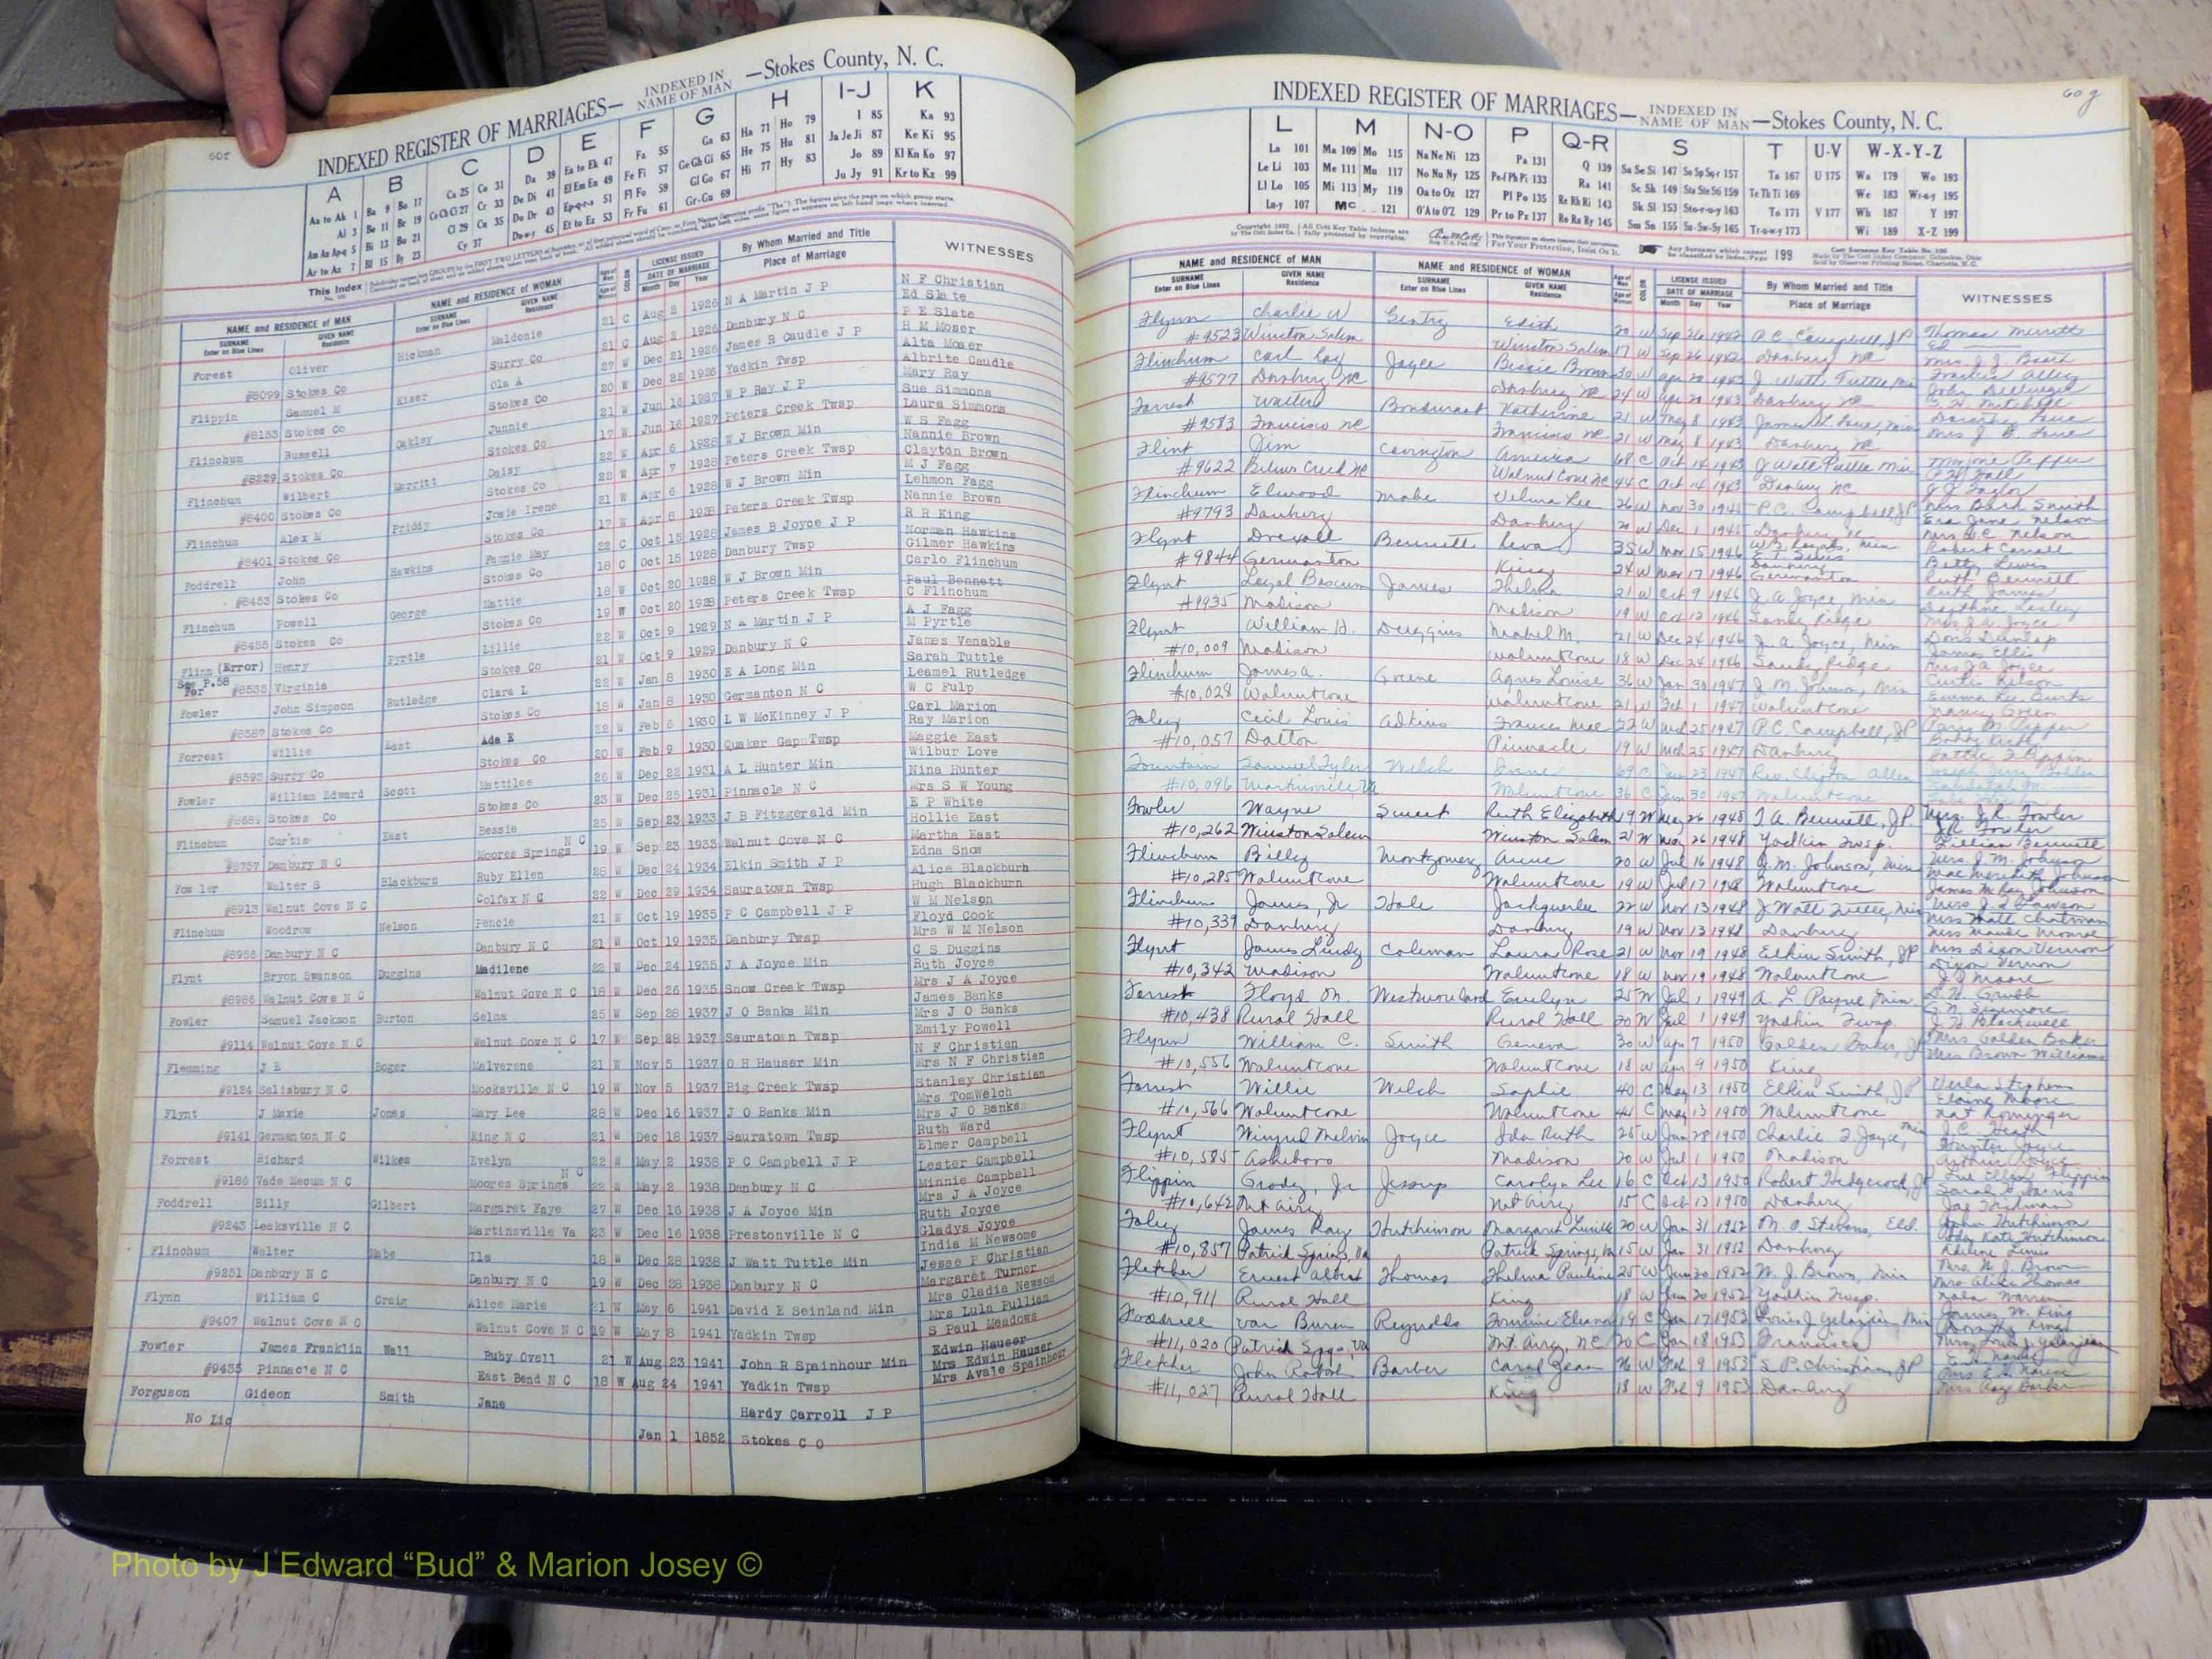 60f
INDEXED REGISTER OF MARRIAGES— INDEXED IN NAME OF MAN —Stokes County, N. C.
A B C D E F G H I-J K
Aa to Ak 1 Ba 9 Bo 17 Ca 25 Co 31 Da 39 Ea to Ek 47 Fa 55 Ga 63 Ha 71 Ho 79 I 85 Ka 93
Al 3 Be 11 Br 19 Ce Ch Ci 27 Cr 33 De Di 41 El Em En 49 Fe Fi 57 Ge Gh Gi 65 He 75 Hu 81 Ja Je Ji 87 Ke Ki 95
Am An Ap-q 5 Bi 13 Bu 21 Cl 29 Cu 35 Do Dr 43 Ep-q-r-s 51 Fl Fo 59 Gl Go 67 Hi 77 Hy 83 Jo 89 Kl Kn Ko 97
Ar to Az 7 Bl 15 By 23 Cy 37 Du-w-y 45 Et to Ez 53 Fr Fu 61 Gr-Gu 69 Ju Jy 91 Kr to Kz 99
This Index
NAME and RESIDENCE OF MAN NAME and RESIDENCE OF WOMAN COLOR LICENSE ISSUED By Whom Married and Title WITNESSES
SURNAME Enter on Blue Lines GIVEN NAME Residence SURNAME Enter on Blue Lines GIVEN NAME Residence DATE OF MARRIAGE Month Day Year Place of Marriage
Forest Oliver Hickman Maldonie 21 C Aug 2 1926 N A Martin J P N F Christian
Ed Slate
#8099 Stokes Co Surry Co 21 C Aug 2 1926 Danbury N C P E Slate
Flippin Samuel M Kiser Ola A 27 W Dec 21 1926 James R Caudle J P H M Moser
Alta Moser
#8153 Stokes Co Stokes Co 20 W Dec 22 1926 Yadkin Twsp Albrite Caudle
Flinchum Russell Oakley Junnie 21 W Jun 16 1927 W P Ray J P Mary Ray
Sue Simmons
#8229 Stokes Co Stokes Co 17 W Jun 16 1927 Peters Creek Twsp Laura Simmons
Flinchum Wilbert Merritt Daisy 22 W Apr 6 1928 W J Brown Min W S Fagg
Nannie Brown
#8400 Stokes Co Stokes Co 22 W Apr 7 1928 Peters Creek Twsp Clayton Brown
Flinchum Alex M Priddy Josie Irene 21 W Apr 6 1928 W J Brown Min M J Fagg
Lehmon Fagg
#8401 Stokes Co Stokes Co 17 W Apr 8 1928 Peters Creek Twsp Nannie Brown
Foddrell John Hawkins Fannie May 22 C Oct 15 1928 James B Joyce J P R R King
Norman Hawkins
#8453 Stokes Co Stokes Co 18 C Oct 15 1928 Danbury Twsp Gilmer Hawkins
Flinchum Powell George Mattie 18 W Oct 20 1928 W J Brown Min Carlo Flinchum
Paul Bennett
#8455 Stokes Co Stokes Co 19 W Oct 20 1928 Peters Creek Twsp C Flinchum
Flinn (Error) Henry Pyrtle Lillie 22 W Oct 9 1929 N A Martin J P A J Fagg
M Pyrtle
See P.58 For #8535 Virginia Stokes Co 21 W Oct 9 1929 Danbury N C James Venable
Fowler John Simpson Rutledge Clara L 22 W Jan 8 1930 E A Long Min Sarah Tuttle
Leamel Rutledge
#8587 Stokes Co Stokes Co 18 W Jan 8 1930 Germanton N C W C Fulp
Forrest Willie East Ada E 22 W Feb 6 1930 L W McKinney J P Carl Marion
Ray Marion
#8593 Surry Co Stokes Co 20 W Feb 9 1930 Quaker Gap Twsp Maggie East
Fowler William Edward Scott Mattilee 26 W Dec 22 1931 A L Hunter Min Wilbur Love
Nina Hunter
Stokes Co Stokes Co 23 W Dec 25 1931 Pinnacle N C Mrs S W Young
Flinchum Curtis East Bessie 25 W Sep 23 1933 J B Fitzgerald Min E P White
Hollie East
#8757 Danbury N C Moores Springs N C 19 W Sep 23 1933 Walnut Cove N C Martha East
Fowler Walter S Blackburn Ruby Ellen 28 W Dec 24 1934 Elkin Smith J P Edna Snow
Alice Blackburn
#8913 Walnut Cove N C Colfax N C 22 W Dec 29 1934 Sauratown Twsp Hugh Blackburn
Flinchum Woodrow Nelson Pencie 21 W Oct 19 1935 P C Campbell J P W M Nelson
Floyd Cook
#8956 Danbury N C Danbury N C 21 W Oct 19 1935 Danbury Twsp Mrs W M Nelson
Flynt Bryon Swanson Duggins Madilene 22 W Dec 24 1935 J A Joyce Min C S Duggins
Ruth Joyce
#8986 Walnut Cove N C Walnut Cove N C 18 W Dec 26 1935 Snow Creek Twsp Mrs J A Joyce
Fowler Samuel Jackson Burton Selma 25 W Sep 28 1937 J O Banks Min James Banks
Mrs J O Banks
#9114 Walnut Cove N C Walnut Cove N C 17 W Sep 28 1937 Sauratown Twsp Emily Powell
Flemming J E Boger Malverene 21 W Nov 5 1937 O H Hauser Min N F Christian
Mrs N F Christian
#9124 Salisbury N C Mocksville N C 19 W Nov 5 1937 Big Creek Twsp Stanley Christian
Flynt J Maxie Jones Mary Lee 28 W Dec 16 1937 J O Banks Min Mrs TomWelch
Mrs J O Banks
#9141 Germanton N C King N C 21 W Dec 18 1937 Sauratown Twsp Ruth Ward
Forrest Richard Wilkes Evelyn 22 W May 2 1938 P C Campbell J P Elmer Campbell
Lester Campbell
#9186 Vade Mecum N C Moores Springs N C 22 W May 2 1938 Danbury N C Minnie Campbell
Foddrell Billy Gilbert Margaret Faye 27 W Dec 16 1938 J A Joyce Min Mrs J A Joyce
Ruth Joyce
#9243 Leaksville N C Martinsville Va 23 W Dec 16 1938 Prestonville N C Gladys Joyce
Flinchum Walter Mabe Ila 18 W Dec 28 1938 J Watt Tuttle Min India M Newsome
Jesse P Christian
#9251 Danbury N C Danbury N C 19 W Dec 28 1938 Danbury N C Margaret Turner
Flynn William C Craig Alice Marie 21 W May 6 1941 David E Seinland Min Mrs Cladia Newsom
Mrs Lula Pulliam
#9407 Walnut Cove N C Walnut Cove N C 19 W May 8 1941 Yadkin Twsp S Paul Meadows
Fowler James Franklin Wall Ruby Ovell 21 W Aug 23 1941 John R Spainhour Min Edwin Hauser
Mrs Edwin Hauser
#9435 Pinnacle N C East Bend N C 18 W Aug 24 1941 Yadkin Twsp Mrs Avale Spainhour
Forguson Gideon Smith Jane Hardy Carroll J P
No Lic Jan 1 1852 Stokes C O
60g
INDEXED REGISTER OF MARRIAGES— INDEXED IN NAME OF MAN —Stokes County, N. C.
L M N-O P Q-R S T U-V W-X-Y-Z
La 101 Ma 109 Mo 115 Na Ne Ni 123 Pa 131 Q 139 Sa Se Si 147 So Sp Sq-r 157 Ta 167 U 175 Wa 179 Wo 193
Le Li 103 Me 111 Mu 117 No Nu Ny 125 Pe-f Ph Pi 133 Ra 141 Sc Sh 149 Sta Ste Sti 159 Te Th Ti 169 We 183 Wr-u-y 195
Ll Lo 105 Mi 113 My 119 Oa to Oz 127 Pl Po 135 Re Rh Ri 143 Sk Sl 153 Sto-r-u-y 163 To 171 V 177 Wh 187 Y 197
Lu-y 107 Mc 121 O'A to O'Z 129 Pr to Pz 137 Ro Ru Ry 145 Sm Sn 155 Su-Sw-Sy 165 Tr-u-w-y 173 Wi 189 X-Z 199
For Your Protection, Insist On It.
Any Surname which cannot be classified by Index, Page 199
NAME and RESIDENCE OF MAN NAME and RESIDENCE OF WOMAN COLOR LICENSE ISSUED By Whom Married and Title WITNESSES
SURNAME Enter on Blue Lines GIVEN NAME Residence SURNAME Enter on Blue Lines GIVEN NAME Residence DATE OF MARRIAGE Month Day Year Place of Marriage
Flynn Charlie W Gentry Edith 20 W Sep 26 1942 P.C. Campbell, JP Thomas Merritt
#9523 Winston Salem Winston Salem 17 W Sep 26 1942 Danbury NC
Flinchum Carl Ray Joyce Bessie Brown 30 W Apr 20 1943 J. Watt Tuttle Min
#9577 Danbury NC Danbury NC 24 W Apr 20 1943 Danbury NC
Forrest Walter Bondurant Katherine 21 W May 8 1943
#9583 Francisco NC Francisco NC 21 W May 8 1943 Danbury NC
Flint Jim Covington America 68 C Oct 14 1943 J Watt Tuttle Min
#9622 Walnut Cove NC 44 C Oct 14 1943 Danbury NC
Flinchum Elwood Mabe Velma Lee 26 W Nov 30 1945 P.C. Campbell JP
#9793 Danbury Danbury 20 W Dec 1 1945 Danbury NC
Flynt Drexall Bennett Reva 35 W 15 1946
#9844 Germanton King 24 W 17 1946 Germanton Ruth Bennett
Flynt Legal Bascum James Thelma 21 W Oct 9 1946 J. A Joyce Min Ruth James
#9935 Madison Madison 19 W Oct 12 1946 Sandy Ridge Mrs J. A. Joyce
Flynt William H. Duggins Mabel M. 21 W Dec 24 1946 J. A. Joyce, Min Doris Dunlap
James Ellis
#10,009 Madison Walnut Cove 18 W Dec 24 1946 Sandy Ridge Mrs J A Joyce
Flinchum James A. Greene Agnes Louise 36 W Jan 30 1947 J. M. Johnson, Min Curtis Nelson
#10,028 Walnut Cove Walnut Cove 21 W Feb 1 1947 Walnut Cove
Foley Cecil Louis Adkins Frances Mae 22 W Mch 25 1947 P.C. Campbell, JP
#10,057 Dalton Pinnacle 19 W Mch 25 1947 Danbury
Fountain Samuel Tyler Welch Irene 69 C 23 1947 Rev. Clifton Allen
#10,096 Martinsville, Va Walnut Cove 36 C 30 1947 Walnut Cove
Fowler Wayne Sweet Ruth Elizabeth 19 W May 26 1948 T. A. Bennett, J.P. Mrs. J.R. Fowler
J.R. Fowler
#10,262 Winston Salem Winston Salem 21 W May 26 1948 Yadkin Twsp. Lillian Bennett
Flinchum Billy Montgomery Anne 20 W Jul 16 1948 J.M. Johnson, Min Mrs. J.M. Johnson
Mae Meredith Johnson
#10,285 Walnut Cove Walnut Cove 19 W Jul 17 1948 Walnut Cove James McRay Johnson
Flinchum James, Jr Hale Jackquerlee 22 W Nov 13 1948 J Watt Tuttle, Min
#10,339 Danbury Danbury 19 W Nov 13 1948 Danbury Miss Maude Monroe
Flynt James Lindy Coleman Laura Rose 21 W Nov 19 1948 Elkin Smith, JP Mrs Dixon Vernon
Dixon Vernon
#10,342 Madison Walnut Cove 18 W Nov 19 1948 Walnut Cove
Forrest Floyd M. Westmoreland Evelyn 25 W Jul 1 1949 A. L. Payne, Min
#10,438 Rural Hall Rural Hall 20 W Jul 1 1949 Yadkin Twsp.
Flynn William C. Smith Geneva 30 W Apr 7 1950 Golden Baker, JP Mrs Golden Baker
Mrs Brown Williams
#10,556 Walnut Cove Walnut Cove 18 W Apr 9 1950 King
Forrest Willie Welch Sophie 40 C May 13 1950 Elkin Smith, JP Verla Stephens
Elaine Moore
#10,566 Walnut Cove Walnut Cove 44 C May 13 1950 Walnut Cove
Flynt Winfred Melvin Joyce Ida Ruth 25 W Jun 28 1950 Charlie F Joyce, Min J. C. Heath
#10,585 Asheboro Madison 20 W Jul 1 1950 Madison
Flippin Grady, Jr Jessup Carolyn Lee 16 C Oct 13 1950 Robert Hedgecock, JP Sue Ellen Flippin
#10,642 Mt Airy Mt Airy 15 C Oct 13 1950 Danbury
Foley James Ray Hutchinson Margaret Lucille 20 W Jan 31 1952 M. O Stevens, Eld. John Hutchinson
#10,857 Patrick Springs, Va Patrick Springs, Va 15 W Jan 31 1952 Danbury
Fletcher Ernest Albert Thomas Thelma Pauline 25 W Jun 20 1952 W. J. Brown, Min Mrs. W. J. Brown
#10,911 Rural Hall King 18 W Jun 20 1952 Yadkin Twsp.
Foddrell Van Buren Reynolds 19 C Jan 17 1953 James W. King
Dorothy King
#11,020 Patrick Spgs, Va Mt. Airy, NC 20 C Jan 18 1953 Francisco
Fletcher John Robert Barber Carol Jean 26 W Feb 9 1953 S. P. Christian, JP
#11,027 Rural Hall King 18 W Feb 9 1953 Danbury Mrs Ray Barber
Photo by J Edward “Bud” & Marion Josey ©